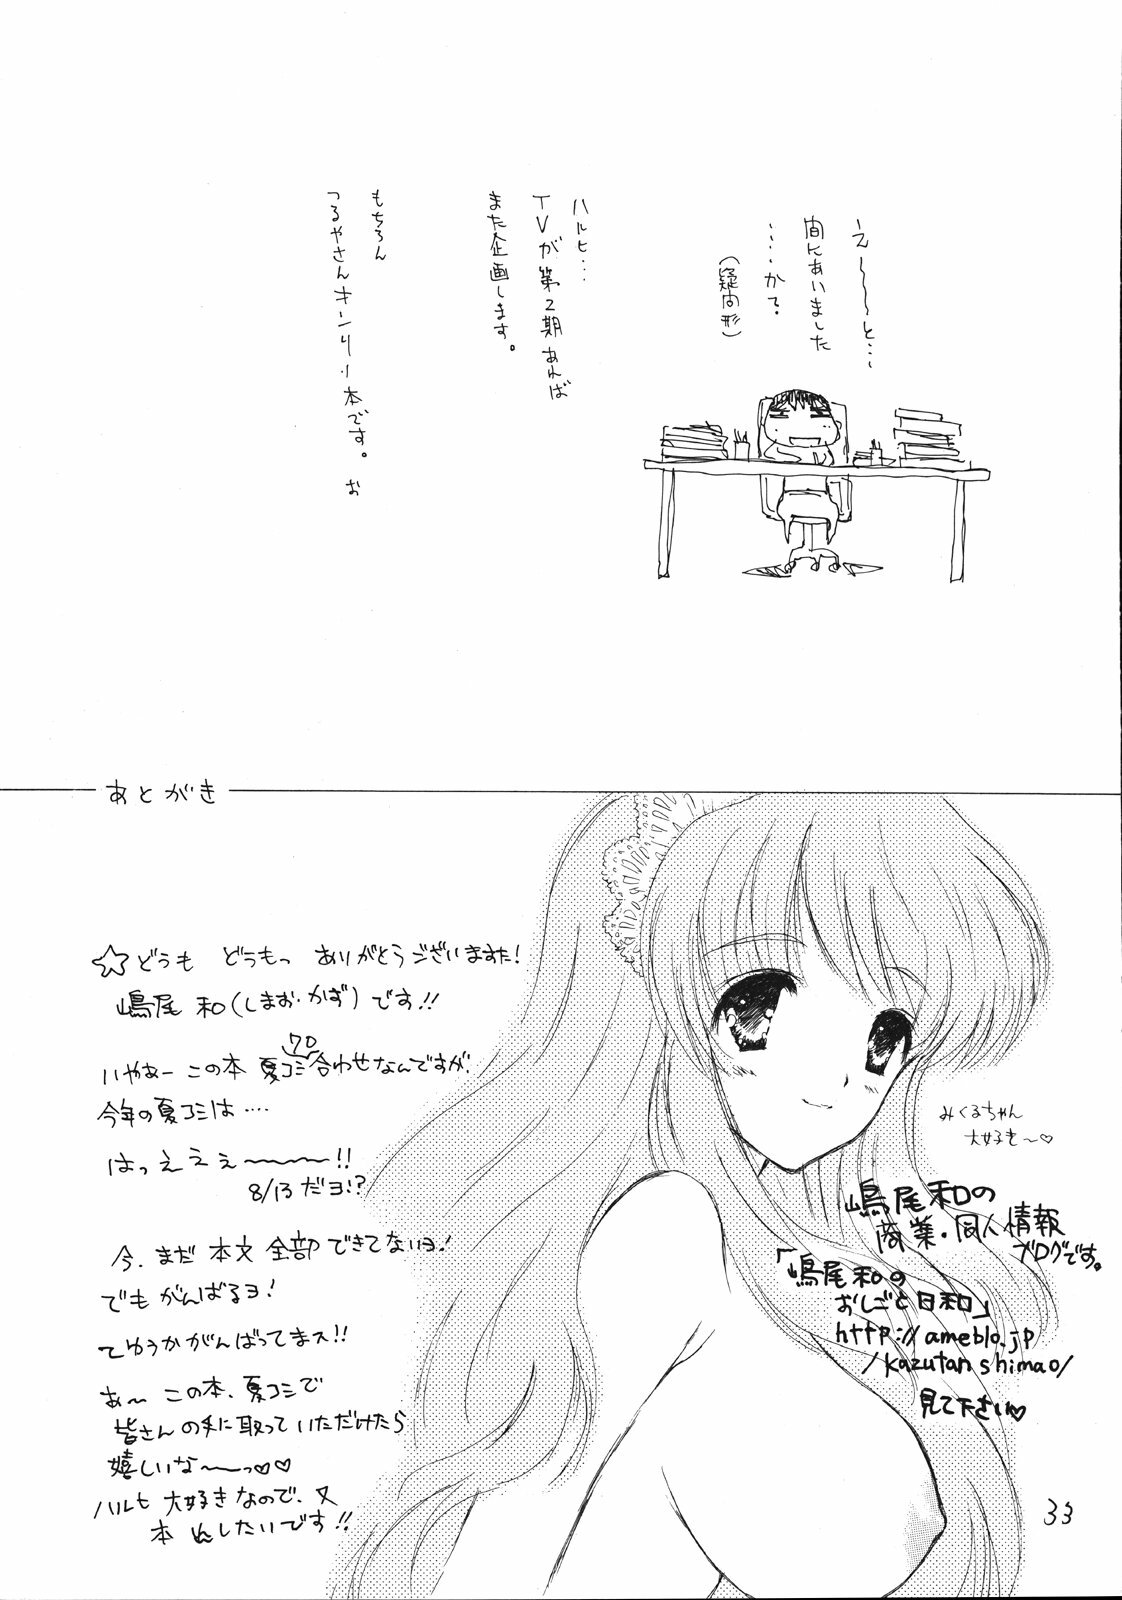 え〜〜〜と…
間にあいました
……か?
(疑問形)
ハルヒ…
TVが第2期あれば
また企画します。
もちろん
つるやさんオンリー本です。 お
あとがき
☆どうも どうもっ ありがとうございますた!
嶋尾 和(しまお・かず)です!!
いやあー この本 夏コミ70合わせなんですが、
今年の夏コミは‥‥
はっええぇ〜〜〜!!
8/13だヨ!?
今、まだ 本文 全部できてないヨ!
でもがんばるヨ!
てゆうかがんばってまス!!
あ〜 この本、夏コミで
皆さんの手に取っていただけたら
嬉しいな〜〜っ♡♡
ハルヒ 大好きなので、又
本 したいです!!
みくるちゃん
大好き〜♡
嶋尾和の
商業・同人情報
ブログです。
「嶋尾和の
おしごと日和」
http://ameblo.jp
/kazutanshimao/
見て下さい♡
33